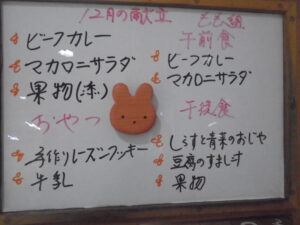 12月の献立
ビーフカレー
マカロニサラダ
果物(柿)
おやつ
手作りレーズンクッキー
牛乳
もも組
午前食
ビーフカレー
マカロニサラダ
午後食
しらすと青菜のおじや
豆腐のすまし汁
果物